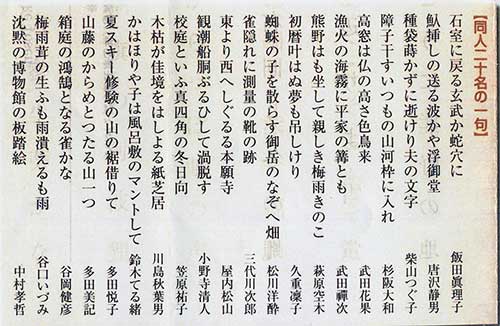 【同人二十名の一句】
石室に戻る玄武か蛇穴に 飯田眞理子
魞挿しの送る波かや浮御堂 唐沢静男
種袋蒔かずに逝けり夫の文字 柴山つぐ子
障子干すいつもの山河枠に入れ 杉阪大和
高窓は仏の高さ色鳥来 武田花果
漁火の海霧に平家の篝とも 武田禪次
熊野はも坐して親しき梅雨きのこ 萩原空木
初暦叶はぬ夢も吊しけり 久重凜子
蜘蛛の子を散らす御岳のなぞへ畑 松川洋酔
雀隠れに測量の靴の跡 三代川次郎
東より西へしぐるる本願寺 屋内松山
観潮船胴ぶるひして渦脱す 小野寺清人
校庭といふ真四角の冬日向 笠原祐子
木枯が佳境をはしよる紙芝居 川島秋葉男
かはほりや子は風呂敷のマントして 鈴木てる緒
夏スキー修験の山の裾借りて 多田悦子
山藤のからめとつたる山一つ 多田美記
箱庭の鴻鵠となる雀かな 谷岡健彦
梅雨茸の生ふも雨潰えるも雨 谷口いづみ
沈黙の博物館の板踏絵 中村孝哲